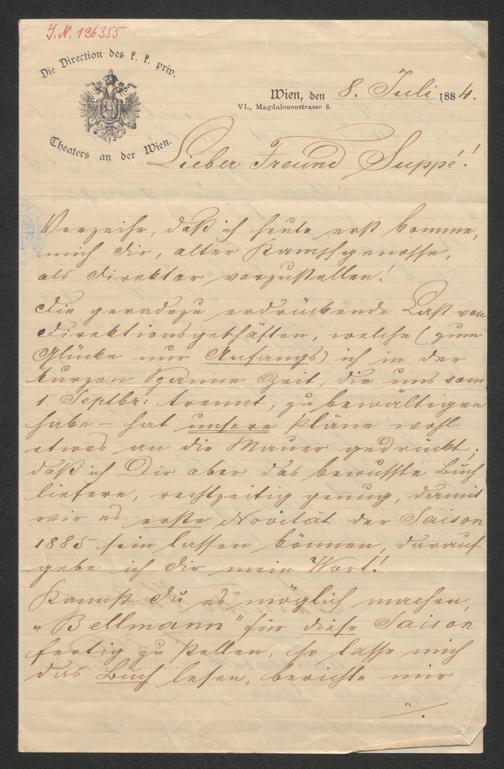 J. N. 136355
Die Direction des k. k. priv.
Theaters an der Wien.
Wien, den 8. Juli 1884.
VI., Magdalenenstrasse 8.
Lieber Freund Suppé!
Verzeihe, daß ich heute erst komme,
mich dir, alter Kampfgenosse,
als Direktor vorzustellen!
Die geradezu erdrückende Last von
Direktionsgeschäften, welche (zum
Glücke nur Anfangs) ich in der
kurzen Spanne Zeit, die uns vom
1 Septbr: trennt, zu bewältigen
habe – hat unsere Pläne wohl
etwas an die Mauer gedrückt.
Daß ich Dir aber das bewusste Buch
liefere, rechtzeitig genug, damit
wir es erste Novität der Saison
1885 sein lassen können, darauf
gebe ich dir mein Wort!
Kannst du es möglich machen,
„Bellmann" für diese Saison
fertig zu stellen, so lasse mich
das Buch lesen, berichte mir
./.